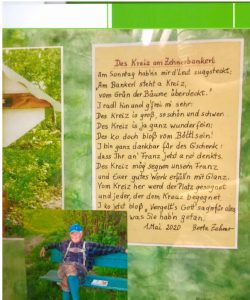 Des Kreiz am Zehnerbankerl
Am Sonntag habns mir d'Leid zuagsteckt:
"Am Bankerl steht a Kreiz,
vom Grün der Bäume überdeckt."
I radl hin und g'frei mi sehr:
Des Kreiz is groß, so schön und schwer.
Des Kreiz is ja ganz wunderfein;
Des ko doch bloß vom Böttl sein!
I bin ganz dankbar für des Gschenk!
dass Ihr an' Franz jetzt a no' denkts.
Des Kreiz mög segnen unsern Franz
und Euer gutes Werk erfülln mit Glanz.
Vom Kreiz her werd der Platz gesegnet
und jeder, der dem Kreuz begegnet
I ko jetzt bloß „Vergelt's Gott" sagn für alles
was Sie hab'n getan.
1. Mai 2020 Berta Zehner